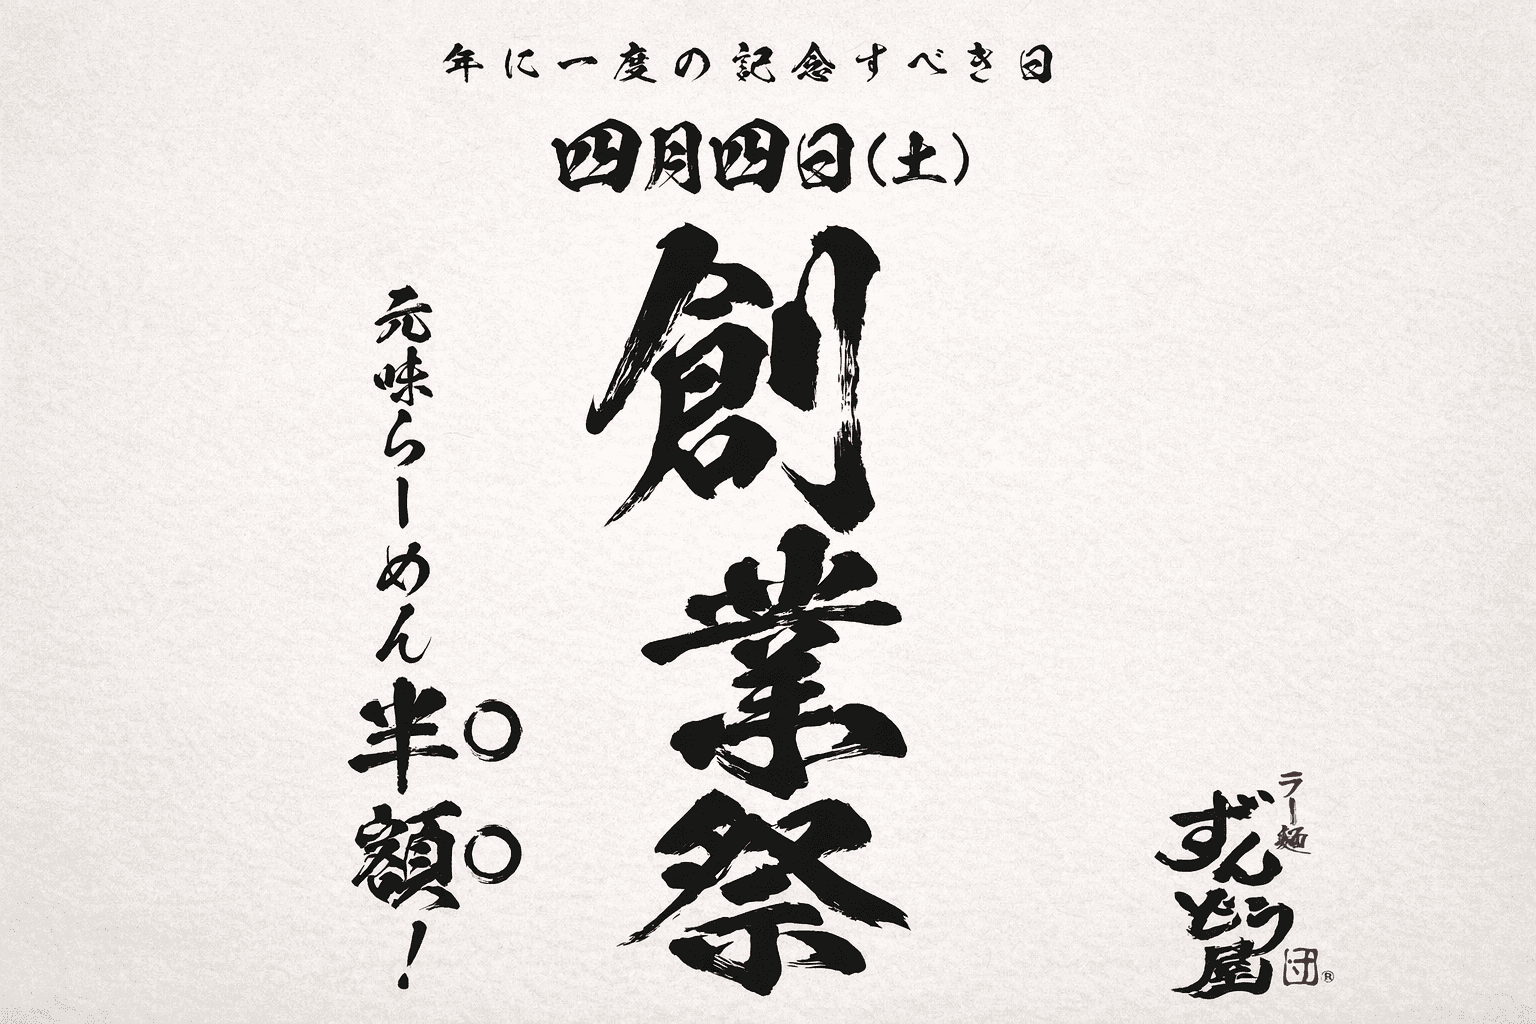 年に一度の記念すべき日
四月四日(土)
創業祭
元味らーめん半額!
ラー麺
ずんどう屋
団®